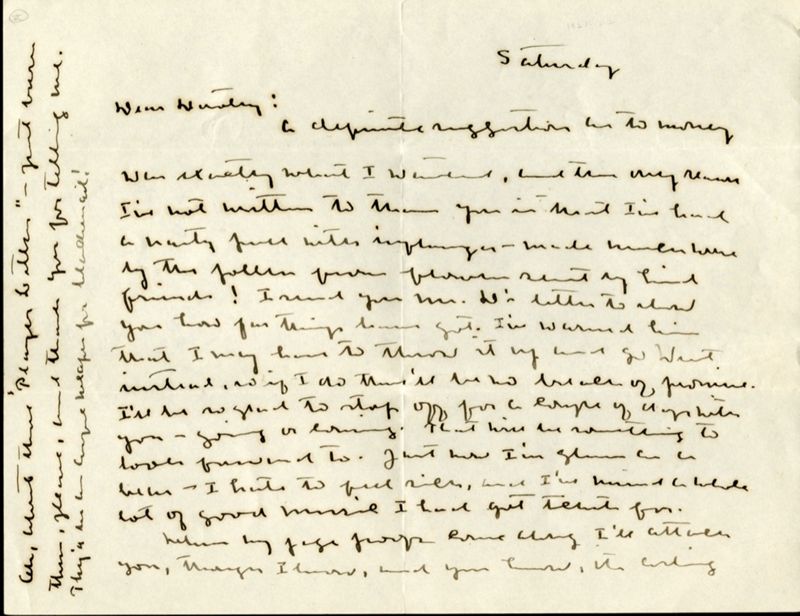 Saturday
Dear Dorothy:
A definite suggestion as to money
was exactly what I wanted, and the only reason
I've not written to thank you is that I've had
a nasty pull with influenza - made much worse
by the pollen from flowers sent by kind
friends! I send you Mr. W's letter to show
you how far things have got. I've warned him
that I may have to throw it up and go West
instead, so if I do there'll be no breach of promise.
I'll be so glad to stop off for a couple of days with
you - going or coming. That will be something to
look forward to. Just now I'm glum as a
bear - I hate to feel sick, and I've missed a whole
lot of good music I had got tickets for.
When my page proofs come along I'll attack
you, though I know, and you know, its boring
Oh, about those "Player letters" - just burn
them, please, and thank you for telling me.
They're in an awful shape for blackmail!